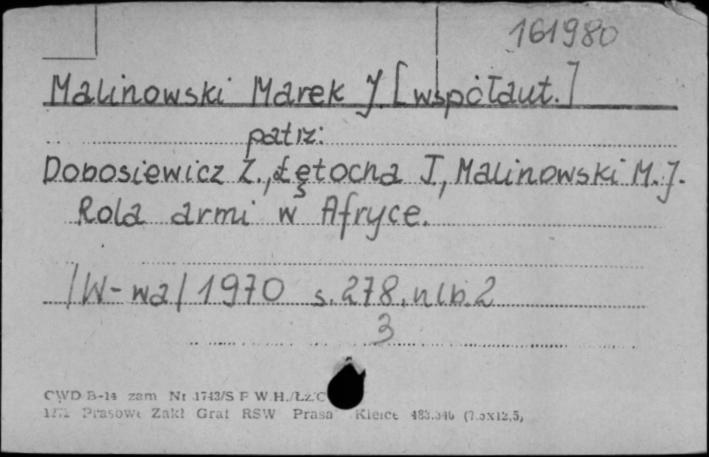 161980
Malinowski Marek J. [współaut.]
patrz:
Dobosiewicz Z., Łętocha T, Malinowski M. J.
Rola armi w Afryce.
/W-wa/ 1970 s. 278, nlb. 2
3
CWD B-14 zam Nr 1743/S F W.H./ŁŻ/C
Prasowe Zakł Graf RSW Prasa Kielce (7.5x12,5)